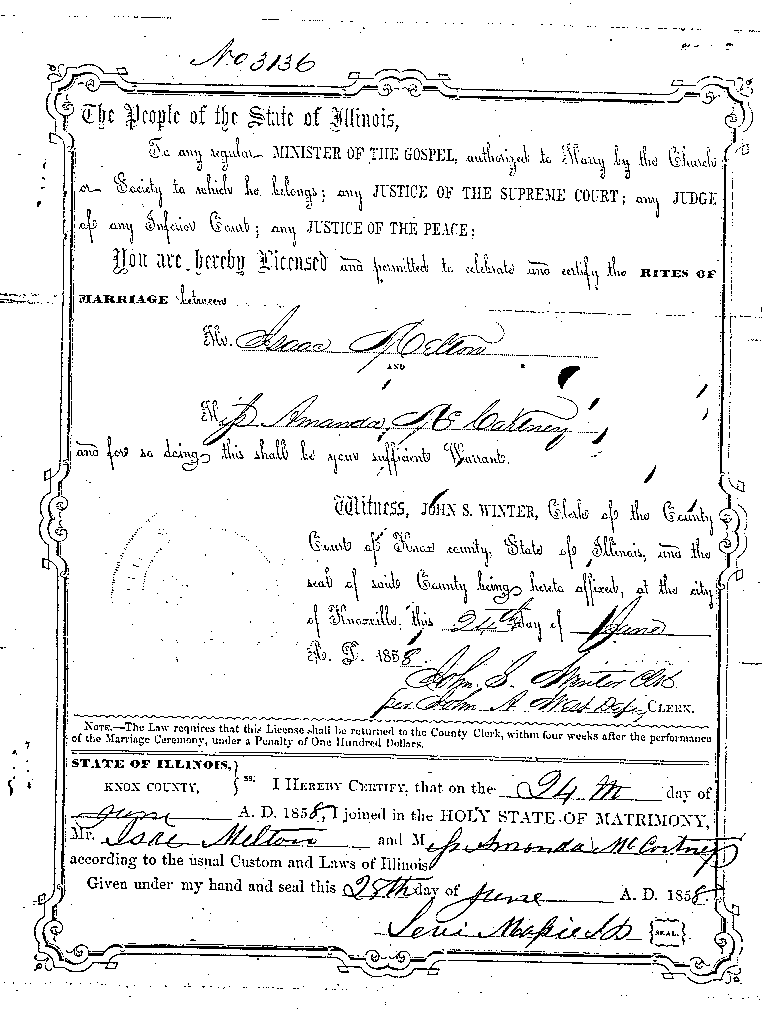 No 3136
The People of the State of Illinois,
To any regular MINISTER OF THE GOSPEL, authorized to Marry by the Church
or Society to which he belongs; any JUSTICE OF THE SUPREME COURT; any JUDGE
of any Inferior Court; any JUSTICE OF THE PEACE:
You are hereby Licensed and permitted to celebrate and certify the RITES OF
MARRIAGE between
Mr. Isaac Melton
AND
Miss Amanda McCartney
and for so doing, this shall be your sufficient Warrant.
Witness, JOHN S. WINTER, Clerk of the County
Court of Knox county, State of Illinois, and the
seal of said County being hereto affixed, at the city
of Knoxville, this 24th day of June
A. D. 1858.
John S. Winter Clk
per John A West Depy CLERK.
NOTE.—The Law requires that this License shall be returned to the County Clerk, within four weeks after the performance
of the Marriage Ceremony, under a Penalty of One Hundred Dollars.
STATE OF ILLINOIS,
KNOX COUNTY, } ss. I HEREBY CERTIFY, that on the 24th day of
June A. D. 1858, I joined in the HOLY STATE OF MATRIMONY,
Mr. Isac Melton and Miss Amanda McCortney
according to the usual Custom and Laws of Illinois
Given under my hand and seal this 28th day of June A. D. 1858.
Levi SEAL.